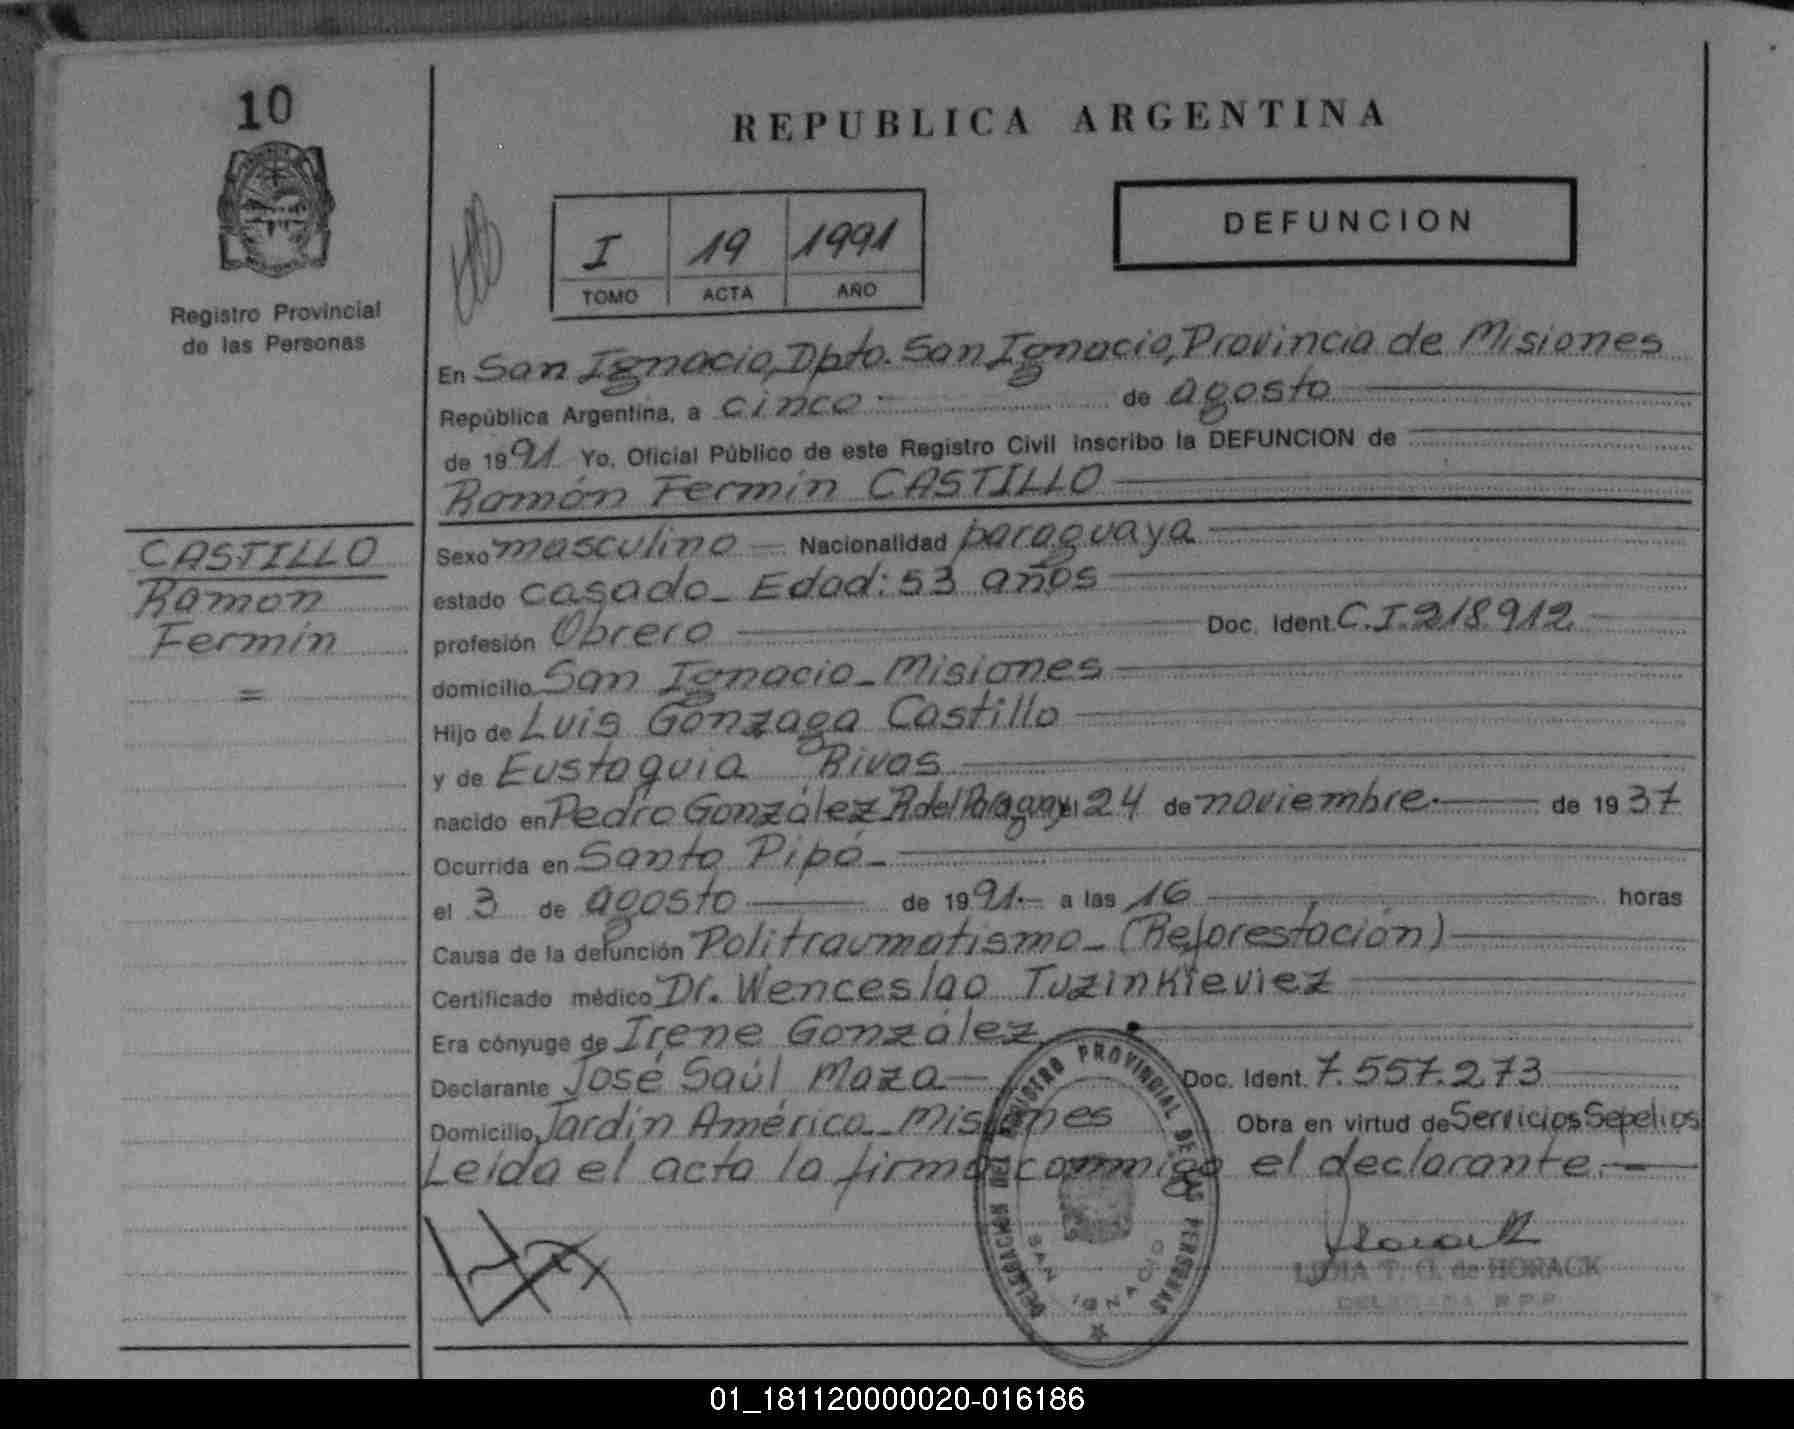 10
REPUBLICA ARGENTINA
DEFUNCION
I 19 1991
TOMO ACTA AÑO
Registro Provincial
de las Personas
En San Ignacio, Dpto. San Ignacio, Provincia de Misiones
República Argentina, a cinco de agosto
de 1991 Yo, Oficial Público de este Registro Civil inscribo la DEFUNCION de
Ramón Fermín CASTILLO
CASTILLO
Ramon
Fermín
=
Sexo masculino — Nacionalidad paraguaya
estado casado - Edad: 53 años
profesión Obrero Doc. Ident. C.I. 218.912
domicilio San Ignacio - Misiones
Hijo de Luis Gonzaga Castillo
y de Eustaquia Rivas
nacido en Pedro González R. del Paraguay el 24 de noviembre de 1937
Ocurrida en Santo Pipó -
el 3 de agosto de 1991 a las 16 horas
Causa de la defunción Politraumatismo - (Reforestación)
Certificado médico Dr. Wenceslao Tuzinkieviez
Era cónyuge de Irene González
Declarante José Saúl Maza — Doc. Ident. 7.557.273
Domicilio Jardín América - Misiones Obra en virtud de Servicios Sepelios
Leída el acta la firma conmigo el declarante.
DELEGACIÓN DEL REGISTRO PROVINCIAL DE LAS PERSONAS
SAN IGNACIO
LIDIA T. G. de HORACK
DELEGADA R.P.P.
01_181120000020-016186